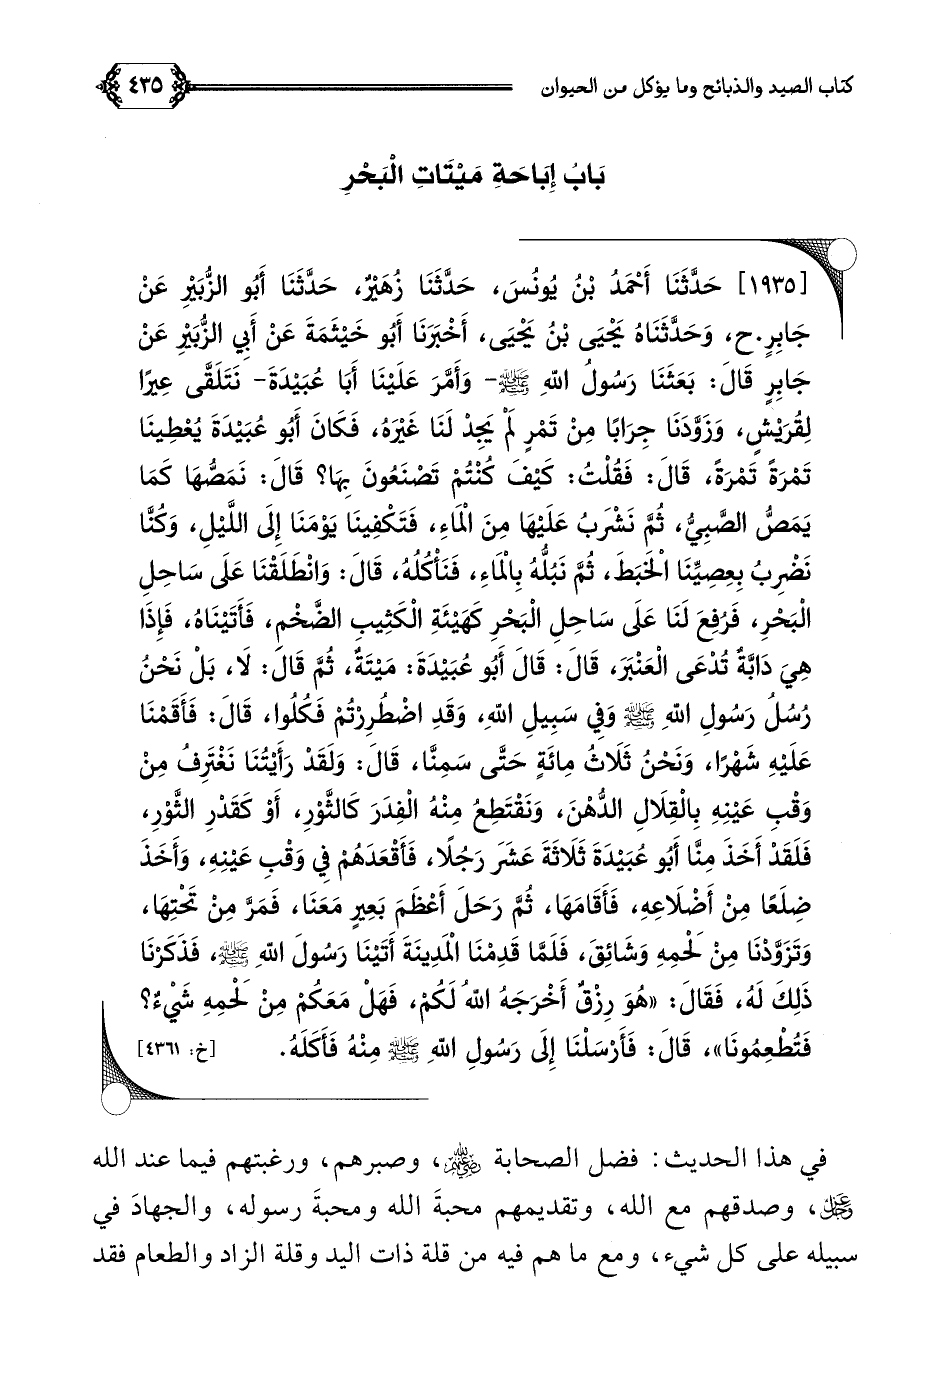 كتاب الصيد والذبائح وما يؤكل من الحيوان
٤٣٥
بَابُ إِبَاحَةِ مَيْتَاتِ الْبَحْرِ
[١٩٣٥] حَدَّثَنَا أَحْمَدُ بْنُ يُونُسَ، حَدَّثَنَا زُهَيْرٌ، حَدَّثَنَا أَبُو الزُّبَيْرِ عَنْ
جَابِرٍ.ح، وَحَدَّثَنَاهُ يَحْيَى بْنُ يَحْيَى، أَخْبَرَنَا أَبُو خَيْثَمَةَ عَنْ أَبِي الزُّبَيْرِ عَنْ
جَابِرٍ قَالَ: بَعَثَنَا رَسُولُ اللهِ ﷺ- وَأَمَّرَ عَلَيْنَا أَبَا عُبَيْدَةَ- نَتَلَقَّى عِيرًا
لِقُرَيْشٍ، وَزَوَّدَنَا جِرَابًا مِنْ تَمْرٍ لَمْ يَجِدْ لَنَا غَيْرَهُ، فَكَانَ أَبُو عُبَيْدَةَ يُعْطِينَا
تَمْرَةً تَمْرَةً، قَالَ: فَقُلْتُ: كَيْفَ كُنْتُمْ تَصْنَعُونَ بِهَا؟ قَالَ: نَمَصُّهَا كَمَا
يَمَصُّ الصَّبِيُّ، ثُمَّ نَشْرَبُ عَلَيْهَا مِنَ الْمَاءِ، فَتَكْفِينَا يَوْمَنَا إِلَى اللَّيْلِ، وَكُنَّا
نَضْرِبُ بِعِصِيِّنَا الْخَبَطَ، ثُمَّ نَبُلُّهُ بِالْمَاءِ، فَنَأْكُلُهُ، قَالَ: وَانْطَلَقْنَا عَلَى سَاحِلِ
الْبَحْرِ، فَرُفِعَ لَنَا عَلَى سَاحِلِ الْبَحْرِ كَهَيْئَةِ الْكَثِيبِ الضَّخْمِ، فَأَتَيْنَاهُ، فَإِذَا
هِيَ دَابَّةٌ تُدْعَى الْعَنْبَرَ، قَالَ: قَالَ أَبُو عُبَيْدَةَ: مَيْتَةٌ، ثُمَّ قَالَ: لَا، بَلْ نَحْنُ
رُسُلُ رَسُولِ اللهِ ﷺ وَفِي سَبِيلِ اللهِ، وَقَدِ اضْطُرِرْتُمْ فَكُلُوا، قَالَ: فَأَقَمْنَا
عَلَيْهِ شَهْرًا، وَنَحْنُ ثَلَاثُ مِائَةٍ حَتَّى سَمِنَّا، قَالَ: وَلَقَدْ رَأَيْتُنَا نَغْتَرِفُ مِنْ
وَقْبِ عَيْنِهِ بِالْقِلَالِ الدُّهْنَ، وَنَقْتَطِعُ مِنْهُ الْفِدَرَ كَالثَّوْرِ، أَوْ كَقَدْرِ الثَّوْرِ،
فَلَقَدْ أَخَذَ مِنَّا أَبُو عُبَيْدَةَ ثَلَاثَةَ عَشَرَ رَجُلًا، فَأَقْعَدَهُمْ فِي وَقْبِ عَيْنِهِ، وَأَخَذَ
ضِلَعًا مِنْ أَضْلَاعِهِ، فَأَقَامَهَا، ثُمَّ رَحَلَ أَعْظَمَ بَعِيرٍ مَعَنَا، فَمَرَّ مِنْ تَحْتِهَا،
وَتَزَوَّدْنَا مِنْ لَحْمِهِ وَشَائِقَ، فَلَمَّا قَدِمْنَا الْمَدِينَةَ أَتَيْنَا رَسُولَ اللهِ ﷺ، فَذَكَرْنَا
ذَلِكَ لَهُ، فَقَالَ: «هُوَ رِزْقٌ أَخْرَجَهُ اللهُ لَكُمْ، فَهَلْ مَعَكُمْ مِنْ لَحْمِهِ شَيْءٌ؟
فَتُطْعِمُونَا»، قَالَ: فَأَرْسَلْنَا إِلَى رَسُولِ اللهِ ﷺ مِنْهُ فَأَكَلَهُ. [خ: ٤٣٦١]
في هذا الحديث: فضل الصحابة ﵃، وصبرهم، ورغبتهم فيما عند الله
عز وجل، وصدقهم مع الله، وتقديمهم محبةَ الله ومحبةَ رسوله، والجهادَ في
سبيله على كل شيء، ومع ما هم فيه من قلة ذات اليد وقلة الزاد والطعام فقد